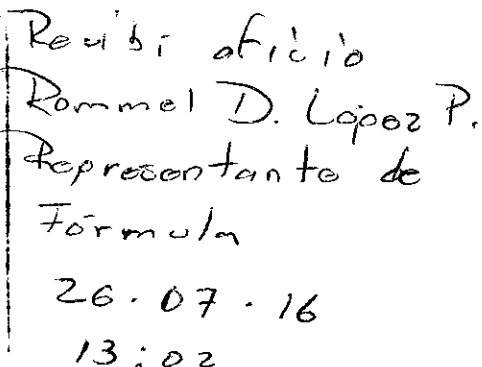 Recibi oficio
Rommel D. López P.
Representante de
Fórmula
26.07.16
13:02